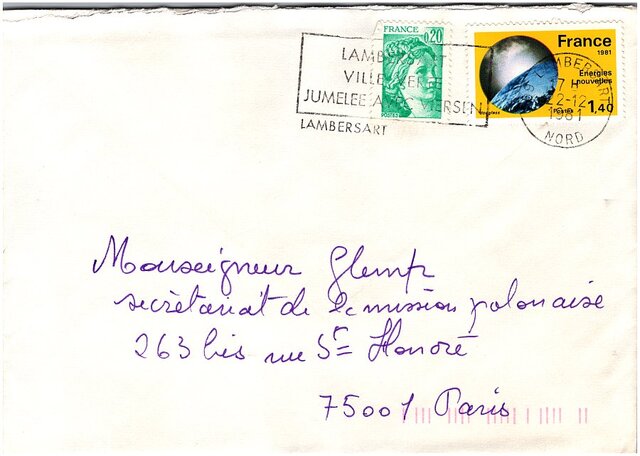 FRANCE 0,20
France
1981
Energies
nouvelles
Postes 1,40
LAMB
VILLE
JUMELEE A VIERSEN
LAMBERSART
LAMBERSART
7H
2-12
1981
NORD
Monseigneur Glemp
secrétariat de la mission polonaise
263 bis rue St Honoré
75001 Paris